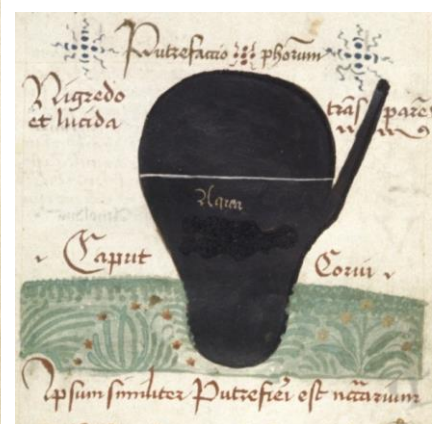 Putrefactio phorum
Nigredo
et lucida
trãs parẽ
Caput
Corui
Ipsum similiter Putrefieri est nccãrium